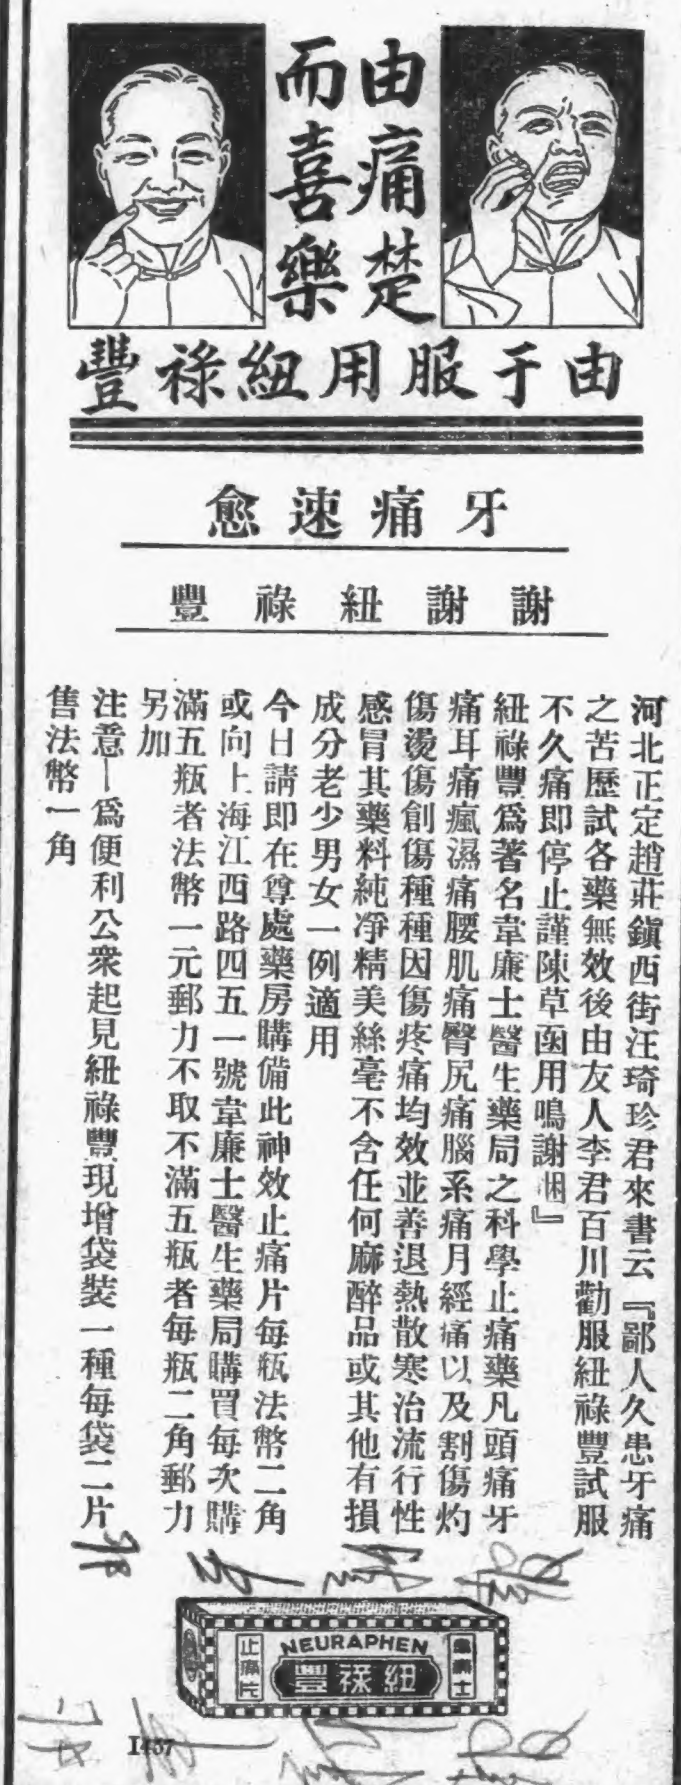 由痛楚
而喜樂
由于服用紐祿豐
牙痛速愈
謝謝紐祿豐
河北正定趙莊鎭西街汪琦珍君來書云『鄙人久患牙痛
之苦歷試各藥無效後由友人李君百川勸服紐祿豐試服
不久痛即停止謹陳草函用鳴謝悃』
紐祿豐爲著名韋廉士醫生藥局之科學止痛藥凡頭痛牙
痛耳痛瘋濕痛腰肌痛臀尻痛腦系痛月經痛以及割傷灼
傷燙傷創傷種種因傷疼痛均效並善退熱散寒治流行性
感冒其藥料純凈精美絲毫不含任何麻醉品或其他有損
成分老少男女一例適用
今日請即在尊處藥房購備此神效止痛片每瓶法幣二角
或向上海江西路四五一號韋廉士醫生藥局購買每次購
滿五瓶者法幣一元郵力不取不滿五瓶者每瓶二角郵力
另加
注意—爲便利公衆起見紐祿豐現增袋裝一種每袋二片
售法幣一角
NEURAPHEN
韋廉士
紐祿豐
止痛片
1457